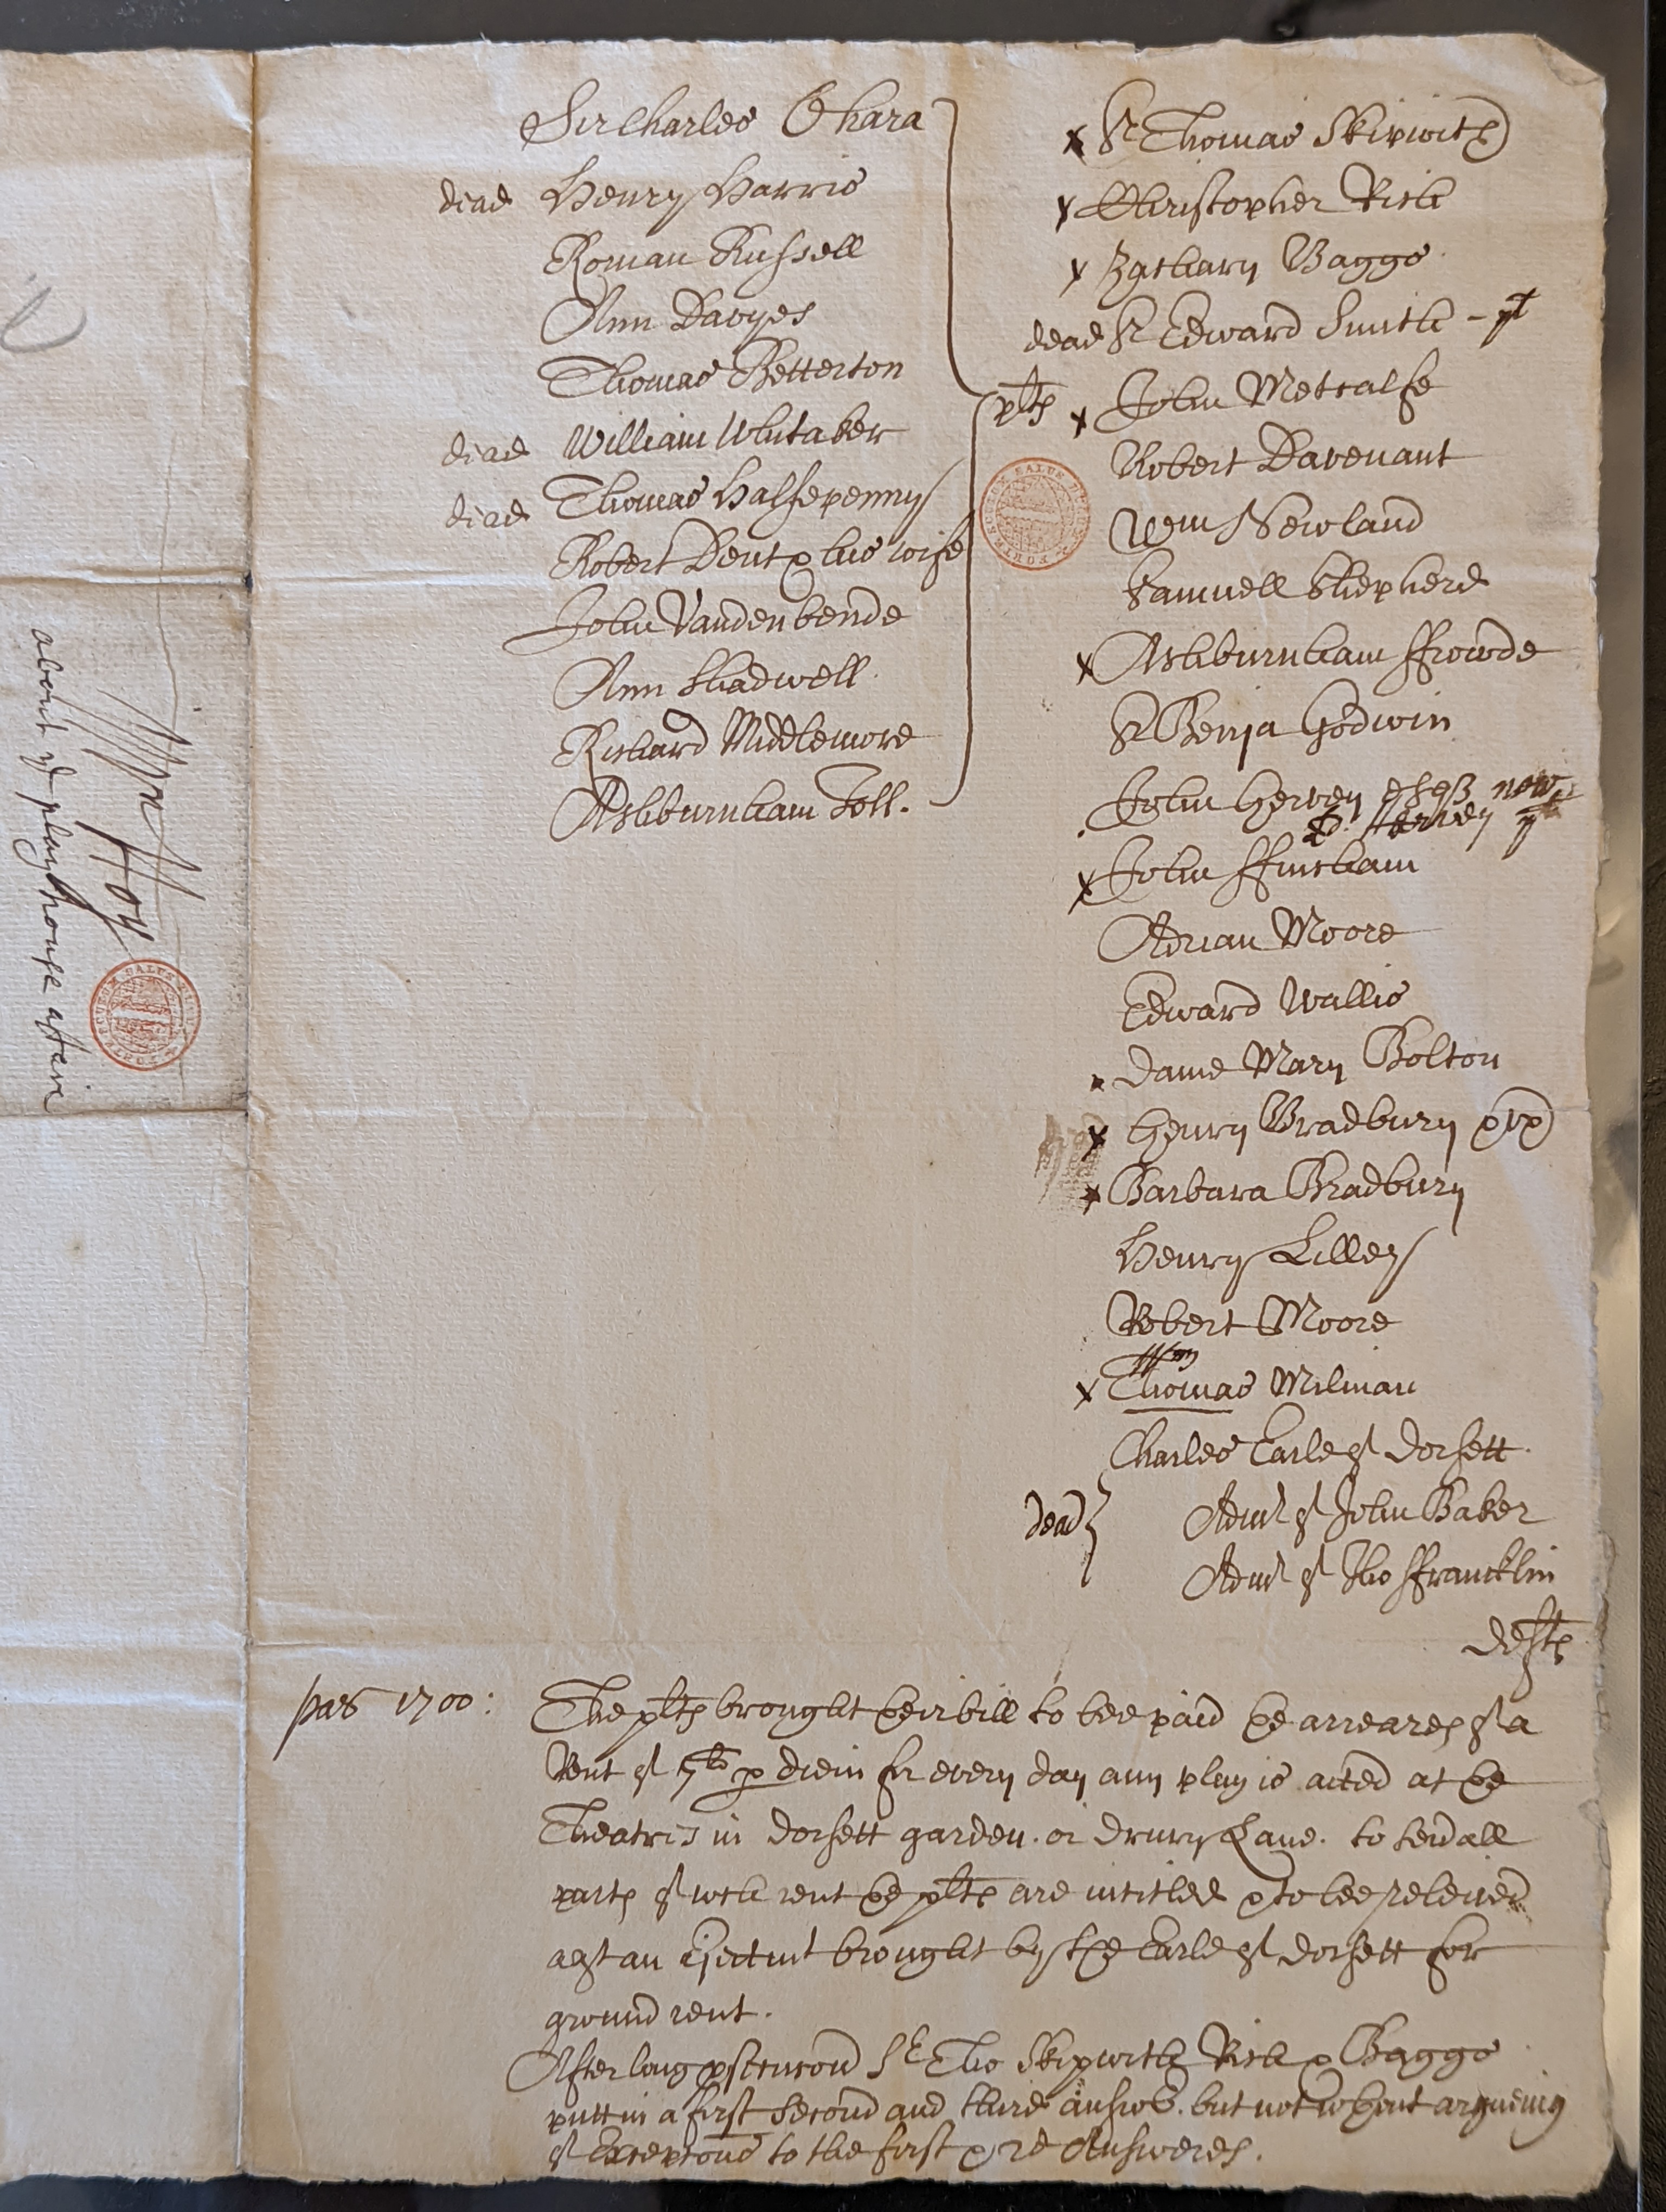 Sir Charles Ohara
dead Henry Harris
Roman Russell
Ann Davyes
Thomas Betterton
dead William Whitaker
dead Thomas Halfepenny
Robert Dent & his wife
John Vandenbende
Ann Shadwell
Richard Middlemore
Ashburnham Toll.
plts
x Sr Thomas Skipwith
x Christopher Rich
x Zachary Baggs
dead Sr Edward Smith - yt
x John Metcalfe
Robert Davenant
Wm Newland
Samuell Shepherd
x Ashburnham ffrowde
Sr Benja Godwin
John Hervey now
Hervey
x John ffincham
Adrian Moore
Edward Wallis
Dame Mary Bolton
x Henry Bradbury & ux
x Barbara Bradbury
Henry Lilley
Robert Moore
Wm
x Thomas Milman
Charles Earle of Dorsett
dead Admr of John Baker
Admr of Tho ffrancklin
defts
pas 1700: The plts brought their bill to bee paid the arreares of a
Rent of 7li p diem for every day any play is acted at the
Theatres in dorsett garden. or drury Lane. to sevrall
parts of wch rent the plts are intitled & to bee releived
agst an Ejectmt brought by the Earle of dorsett for
ground rent.
After long Sr Tho Skipwith Rich & Baggs
putt in a first second and third answer. but not without argueing
of Excepcons to the first & 2d Answeres.
Wm Hoy
about ye playhouse affair